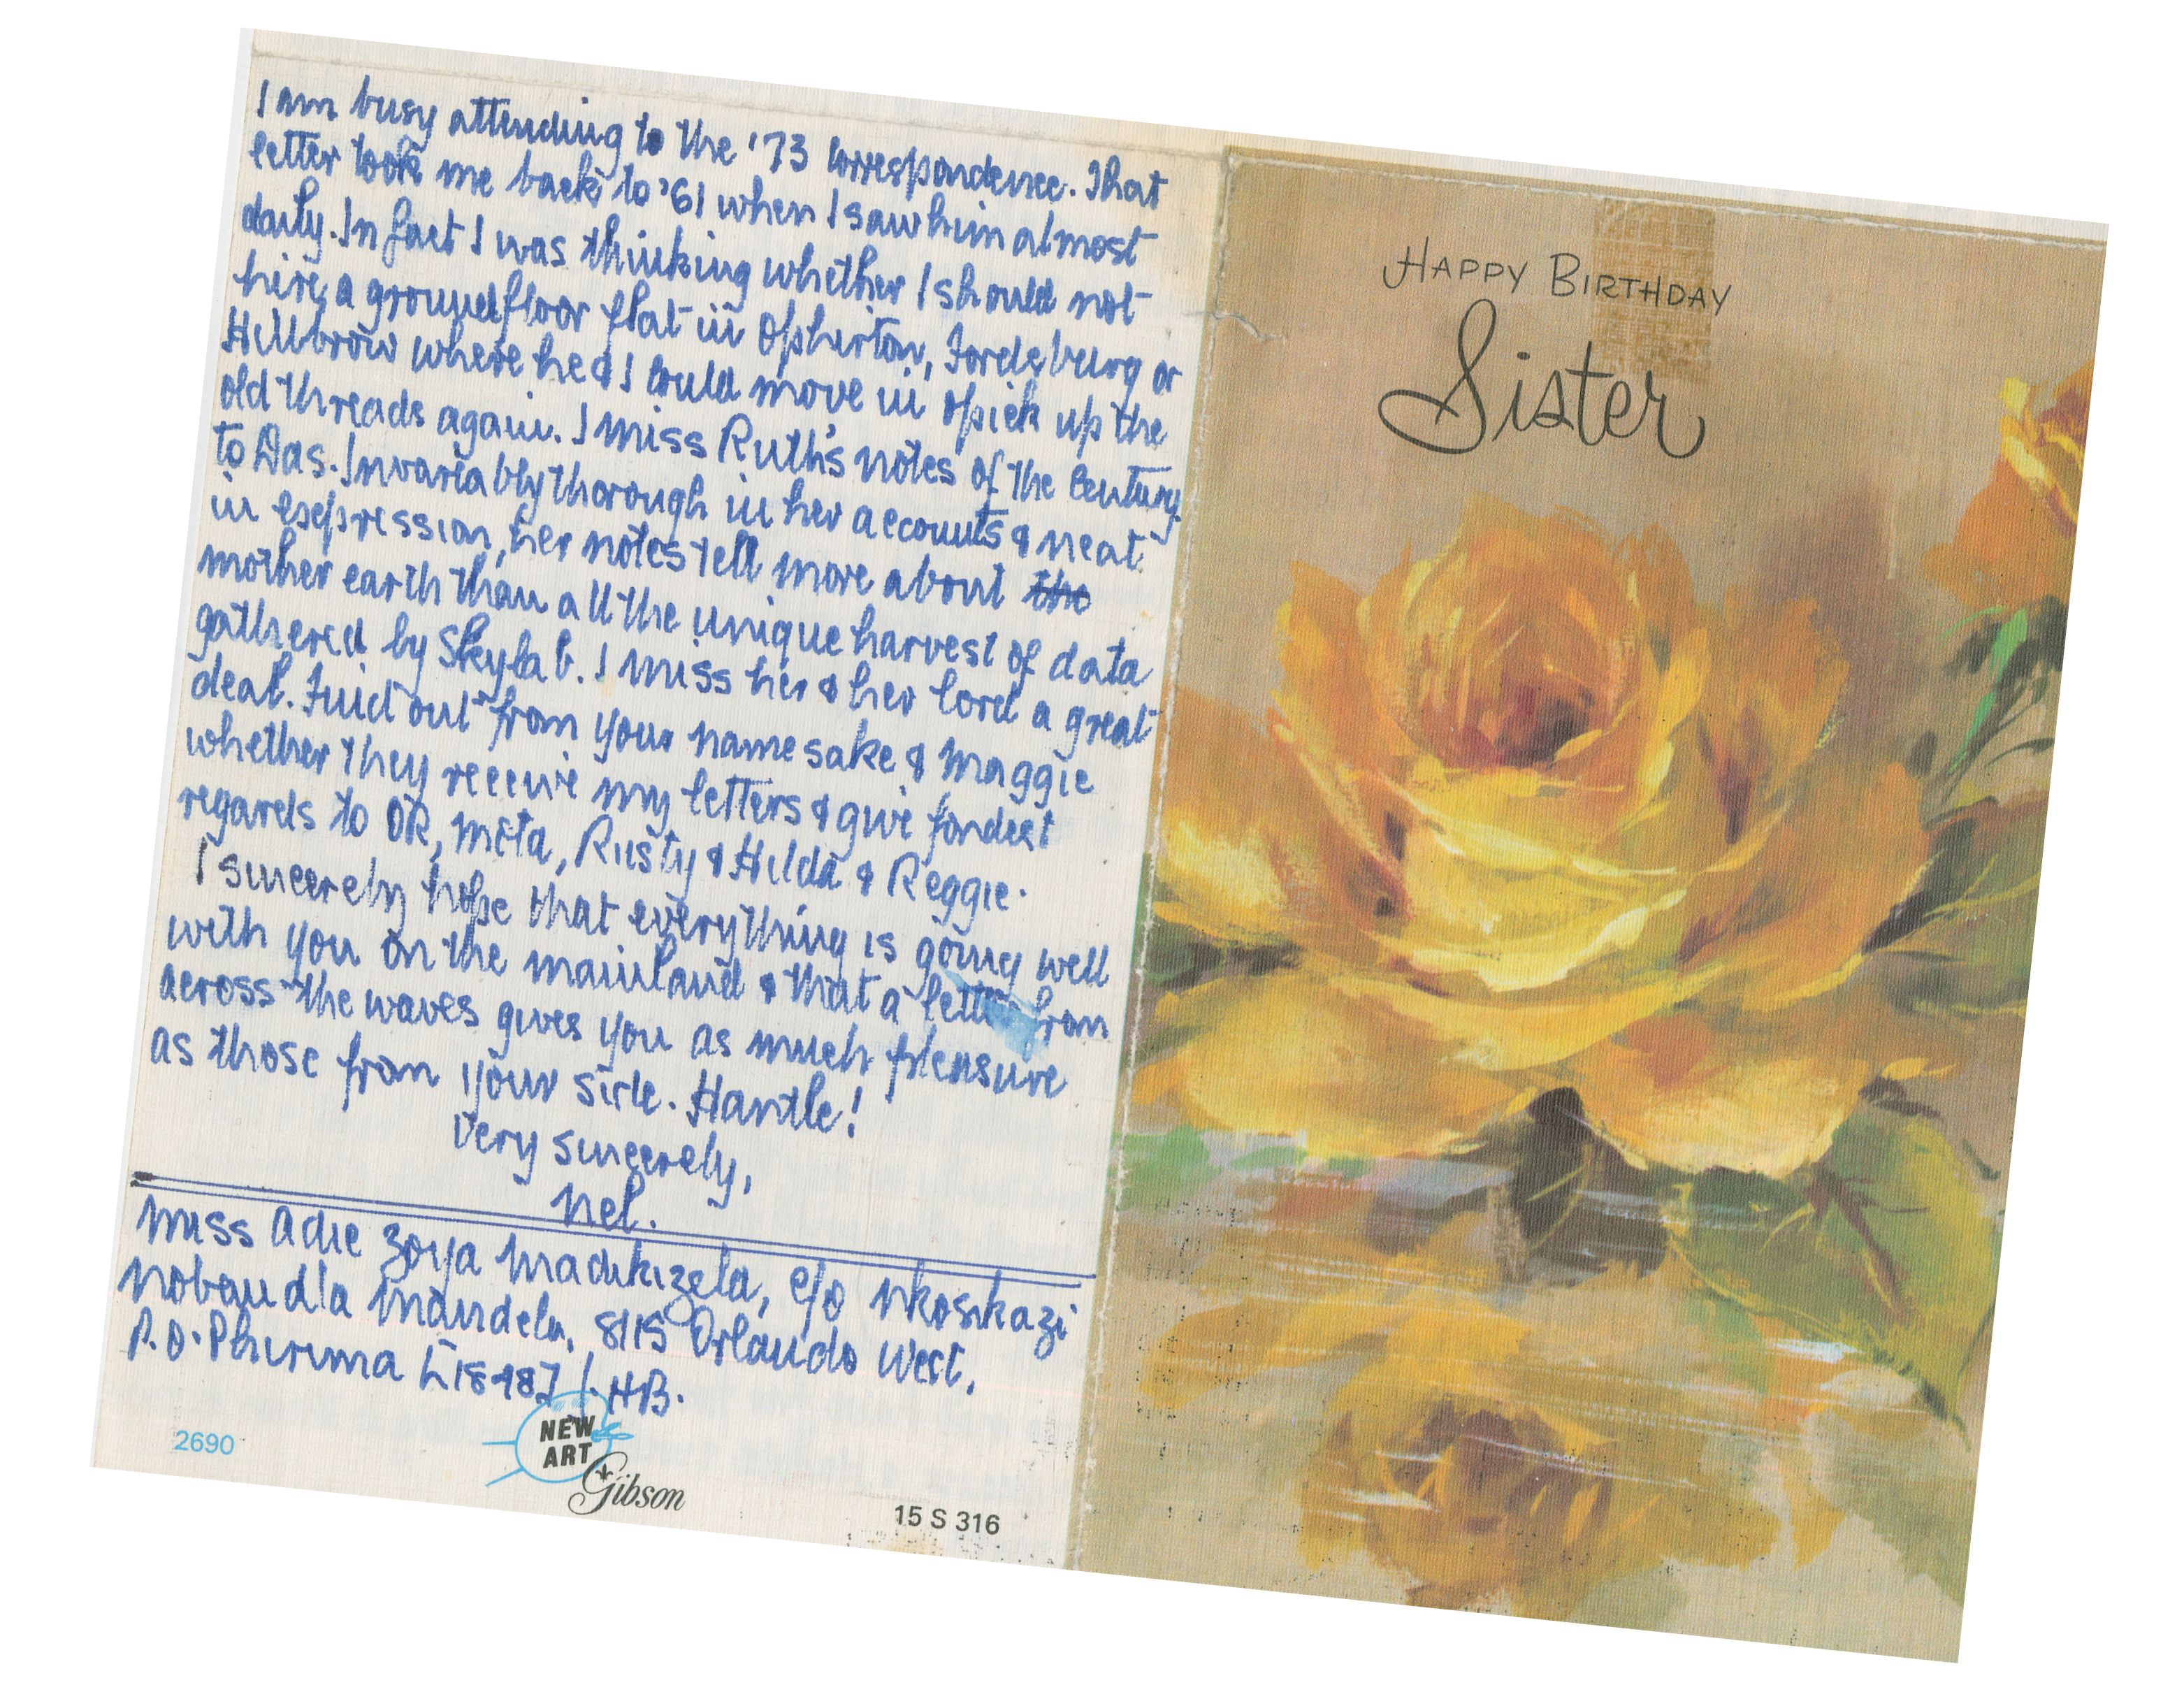 I am busy attending to the '73 correspondence. That
letter took me back to '61 when I saw him almost
daily. In fact I was thinking whether I should not
hire a groundfloor flat in Ophirton, Fordsburg or
Hillbrow where he & I could move in & pick up the
old threads again. I miss Ruth's notes of the Century
to Das. Invariably thorough in her accounts & neat
in expression, her notes tell more about the
mother earth than all the unique harvest of data
gathered by Skylab. I miss her & her lord a great
deal. Find out from your namesake & Maggie
whether they receive my letters & give fondest
regards to OR, Meta, Rusty & Hilda & Reggie.
I sincerely hope that everything is going well
with you on the mainland & that a letter from
across the waves gives you as much pleasure
as those from your side. Hantle!
Very sincerely,
Nel.
Miss Adie Zoya Madikizela, c/o Nkosikazi
Nobandla Mandela, 8115 Orlando West,
P.O. Phirima [1848] J.HB.
2690
NEW
ART
Gibson
15 S 316
HAPPY BIRTHDAY
Sister